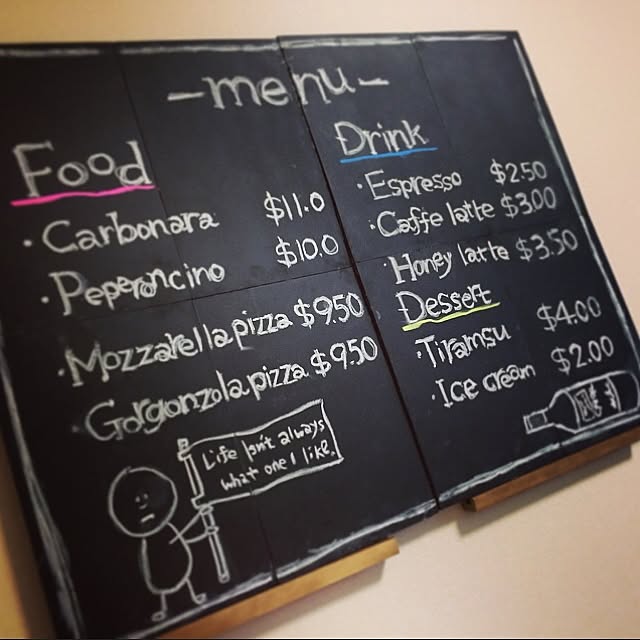 -menu-
Food
· Carbonara $11.0
· Peperoncino $10.0
· Mozzarella pizza $9.50
· Gorgonzola pizza $9.50
Life Isn't always
what one I like.
Drink
· Espresso $2.50
· Caffe latte $3.00
· Honey latte $3.50
Dessert
· Tiramsu $4.00
· Ice cream $2.00